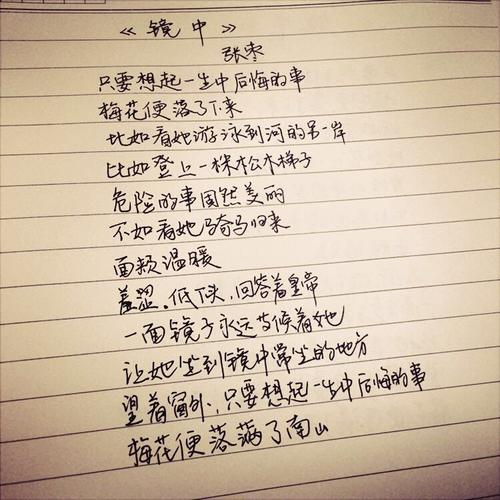 《镜中》
张枣
只要想起一生中后悔的事
梅花便落了下来
比如看她游泳到河的另一岸
比如登上一株松木梯子
危险的事固然美丽
不如看她骑马归来
面颊温暖
羞涩.低下头,回答着皇帝
一面镜子永远等候着她
让她坐到镜中常坐的地方
望着窗外,只要想起一生中后悔的事
梅花便落满了南山